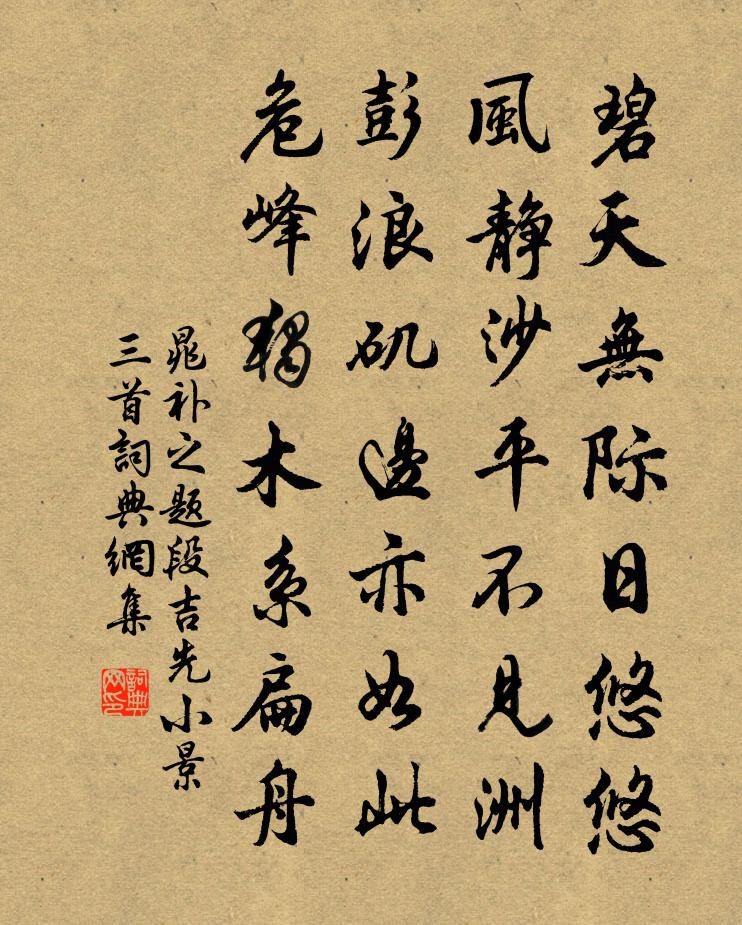 碧天無际日悠悠
風静沙平不見洲
彭浪矶邊亦如此
危峰獨木系扁舟
晁补之题段吉先小景
三首詞典網集
詞典网印